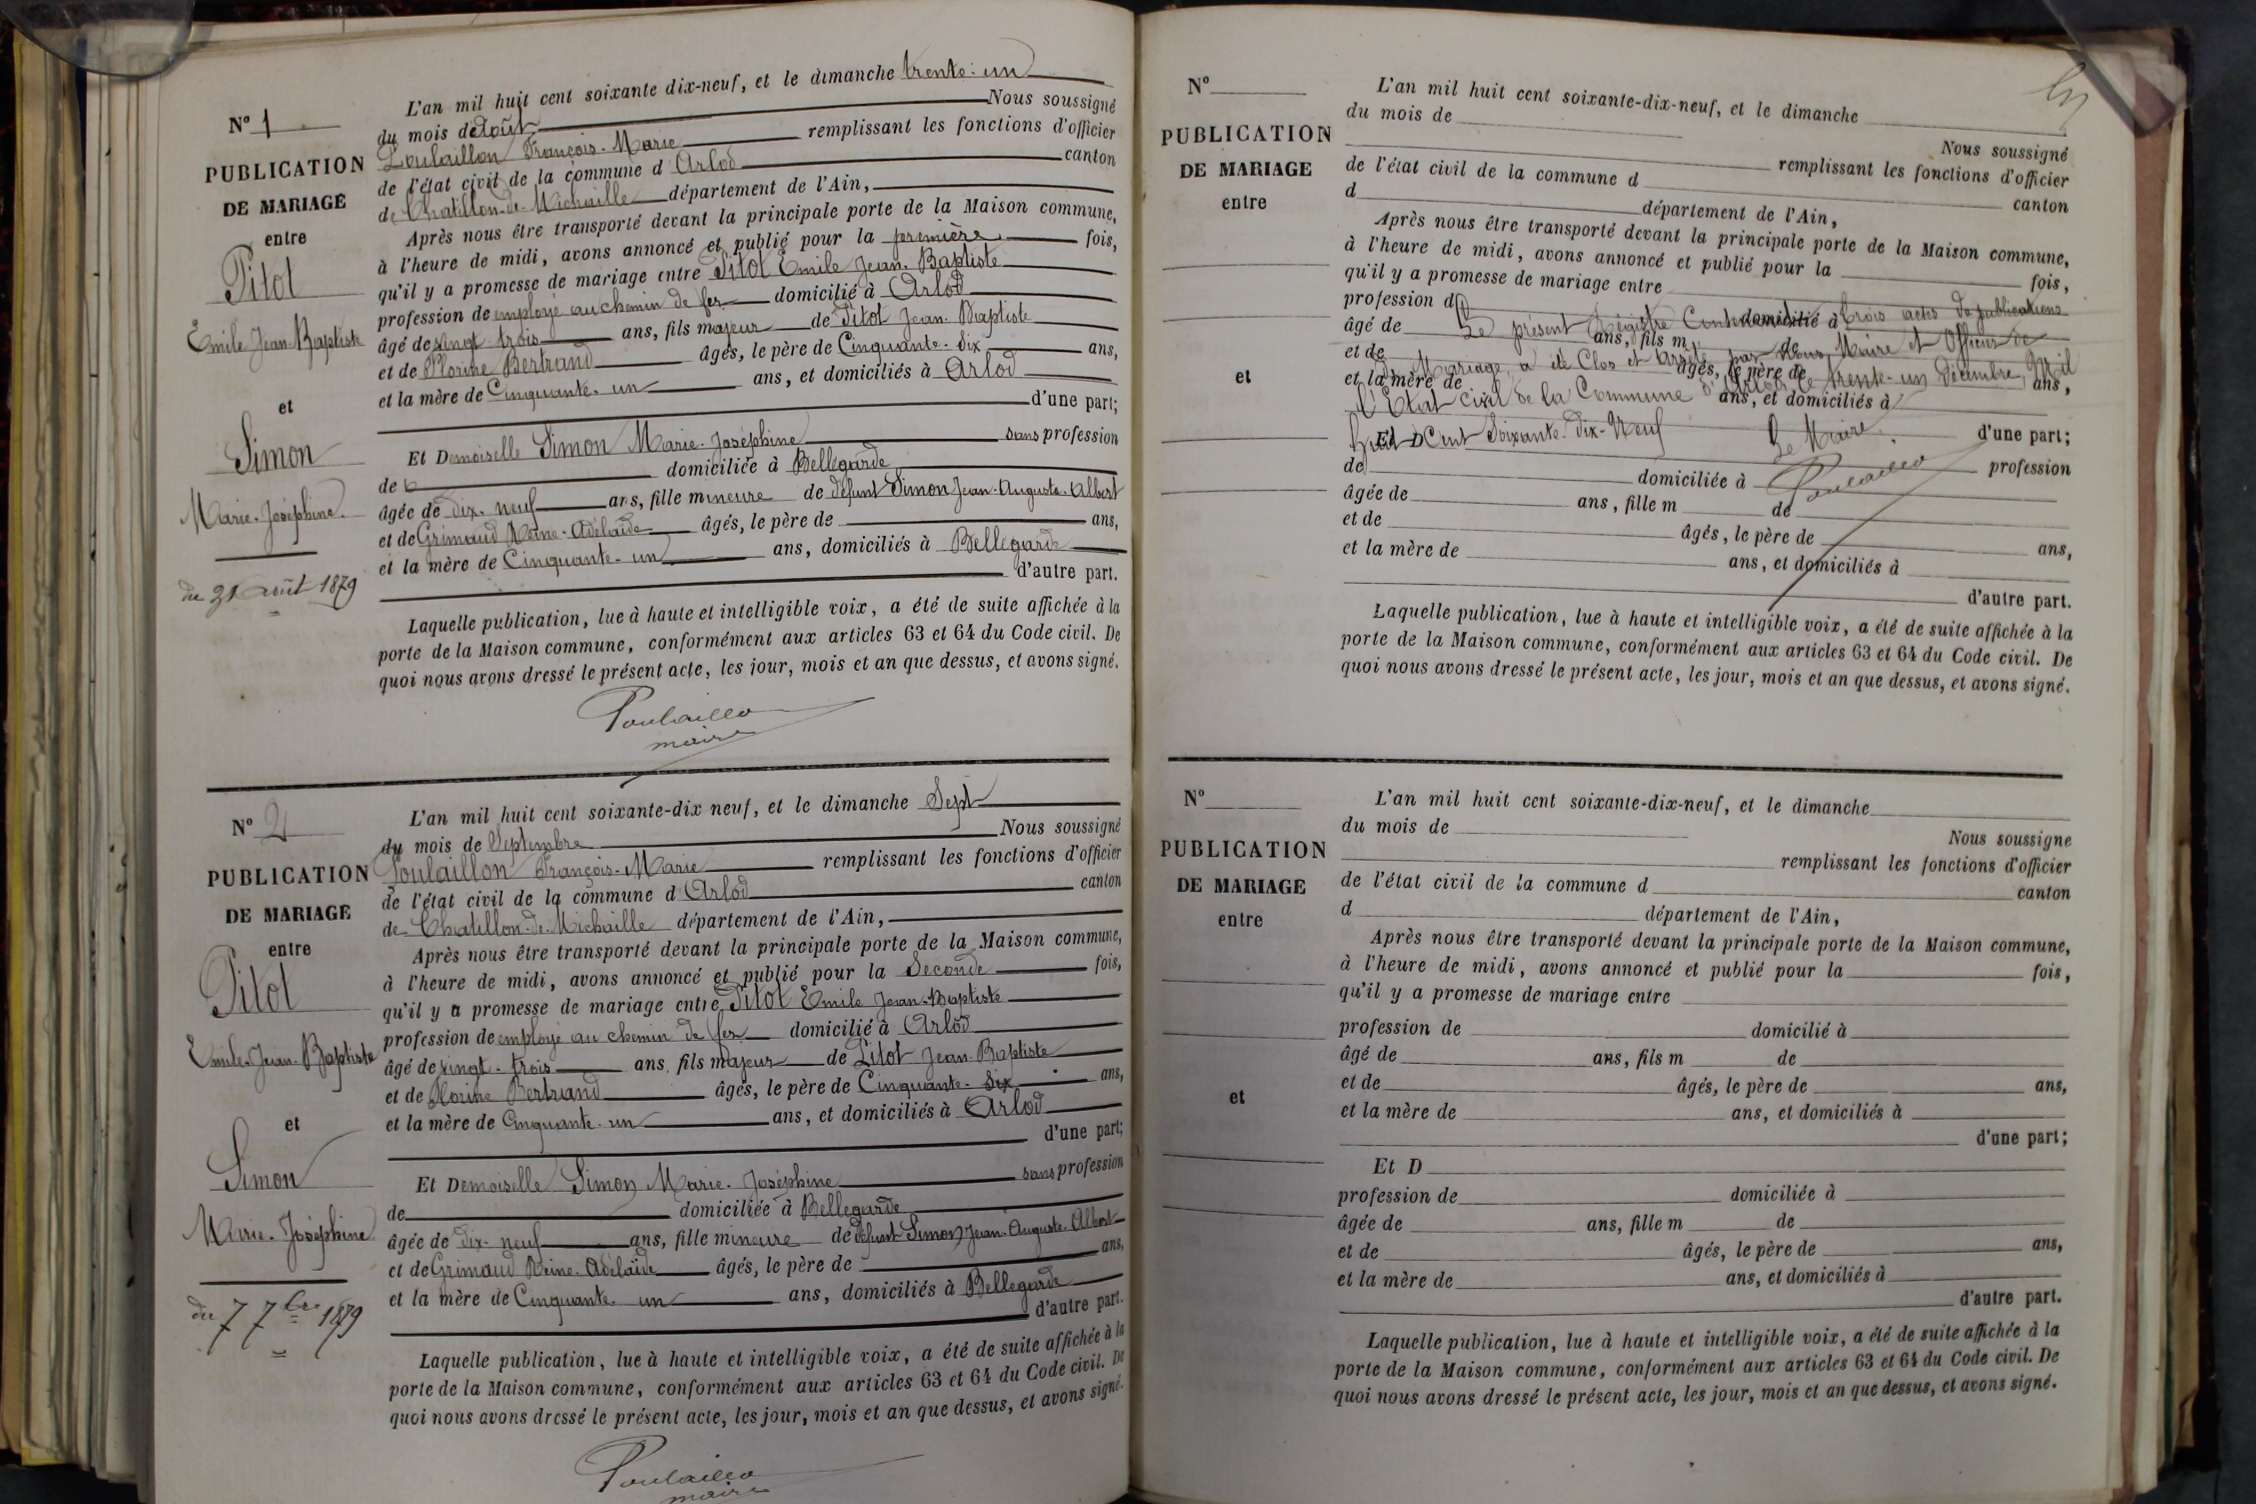 N° 1
PUBLICATION
DE MARIAGE
entre
Pitot
Emile Jean-Baptiste
et
Simon
Marie-Joséphine.
du 31 août 1879
L'an mil huit cent soixante dix-neuf, et le dimanche trente-un
du mois d'août Nous soussigné
Poulaillon François-Marie remplissant les fonctions d'officier
de l'état civil de la commune d Arlod canton
de Chatillon-de-Michaille département de l'Ain,
Après nous être transporté devant la principale porte de la Maison commune,
à l'heure de midi, avons annoncé et publié pour la première fois,
qu'il y a promesse de mariage entre Pitot Emile Jean-Baptiste
profession de employé au chemin de fer domicilié à Arlod
âgé de vingt trois ans, fils majeur de Pitot Jean-Baptiste
et de Florine Bertrand âgés, le père de Cinquante-six ans,
et la mère de Cinquante-un ans, et domiciliés à Arlod
d'une part;
Et Demoiselle Simon Marie-Joséphine sans profession
de domiciliée à Bellegarde
âgée de dix-neuf ans, fille mineure de défunt Simon Jean-Auguste-Albert
et de Grimaud Reine-Adélaïde âgés, le père de ans,
et la mère de Cinquante-un ans, domiciliés à Bellegarde
d'autre part.
Laquelle publication, lue à haute et intelligible voix, a été de suite affichée à la
porte de la Maison commune, conformément aux articles 63 et 64 du Code civil. De
quoi nous avons dressé le présent acte, les jour, mois et an que dessus, et avons signé.
Poulaillon
maire
N° 2
PUBLICATION
DE MARIAGE
entre
Pitot
Emile-Jean-Baptiste
et
Simon
Marie-Joséphine
du 7 7bre 1879
L'an mil huit cent soixante-dix neuf, et le dimanche Sept
du mois de Septembre Nous soussigné
Poulaillon François-Marie remplissant les fonctions d'officier
de l'état civil de la commune d Arlod canton
de Chatillon-de-Michaille département de l'Ain,
Après nous être transporté devant la principale porte de la Maison commune,
à l'heure de midi, avons annoncé et publié pour la Seconde fois,
qu'il y a promesse de mariage entre Pitot Emile Jean-Baptiste
profession de employé au chemin de fer domicilié à Arlod
âgé de vingt-trois ans, fils majeur de Pitot Jean-Baptiste
et de Florine Bertrand âgés, le père de Cinquante-six ans,
et la mère de Cinquante-un ans, et domiciliés à Arlod
d'une part;
Et Demoiselle Simon Marie-Joséphine sans profession
de domiciliée à Bellegarde
âgée de dix-neuf ans, fille mineure de défunt Simon Jean-Auguste-Albert
et de Grimaud Reine-Adélaïde âgés, le père de ans,
et la mère de Cinquante-un ans, domiciliés à Bellegarde
d'autre part.
Laquelle publication, lue à haute et intelligible voix, a été de suite affichée à la
porte de la Maison commune, conformément aux articles 63 et 64 du Code civil. De
quoi nous avons dressé le présent acte, les jour, mois et an que dessus, et avons signé.
Poulaillon
maire
N°
PUBLICATION
DE MARIAGE
entre
et
L'an mil huit cent soixante-dix-neuf, et le dimanche
du mois de
Nous soussigné
remplissant les fonctions d'officier
de l'état civil de la commune d canton
d département de l'Ain,
Après nous être transporté devant la principale porte de la Maison commune,
à l'heure de midi, avons annoncé et publié pour la fois,
qu'il y a promesse de mariage entre
profession d domicilié à
Le présent Registre Contenant trois actes de publications
âgé de ans, fils m de
de Mariage, a été Clos et arrêté par Nous, Maire et Officier de
et de âgés, le père de ans,
l'Etat civil de la Commune d'Arlod, le trente-un Décembre, Mil
et la mère de ans, et domiciliés à
huit Cent Soixante-Dix-Neuf Le Maire.
d'une part;
Et D
Poulaillon
de domiciliée à profession
âgée de ans, fille m de
et de âgés, le père de ans,
et la mère de ans, et domiciliés à
d'autre part.
Laquelle publication, lue à haute et intelligible voix, a été de suite affichée à la
porte de la Maison commune, conformément aux articles 63 et 64 du Code civil. De
quoi nous avons dressé le présent acte, les jour, mois et an que dessus, et avons signé.
N°
PUBLICATION
DE MARIAGE
entre
et
L'an mil huit cent soixante-dix-neuf, et le dimanche
du mois de Nous soussigne
remplissant les fonctions d'officier
de l'état civil de la commune d canton
d département de l'Ain,
Après nous être transporté devant la principale porte de la Maison commune,
à l'heure de midi, avons annoncé et publié pour la fois,
qu'il y a promesse de mariage entre
profession de domicilié à
âgé de ans, fils m de
et de âgés, le père de ans,
et la mère de ans, et domiciliés à
d'une part;
Et D
profession de domiciliée à
âgée de ans, fille m de
et de âgés, le père de ans,
et la mère de ans, et domiciliés à
d'autre part.
Laquelle publication, lue à haute et intelligible voix, a été de suite affichée à la
porte de la Maison commune, conformément aux articles 63 et 64 du Code civil. De
quoi nous avons dressé le présent acte, les jour, mois et an que dessus, et avons signé.